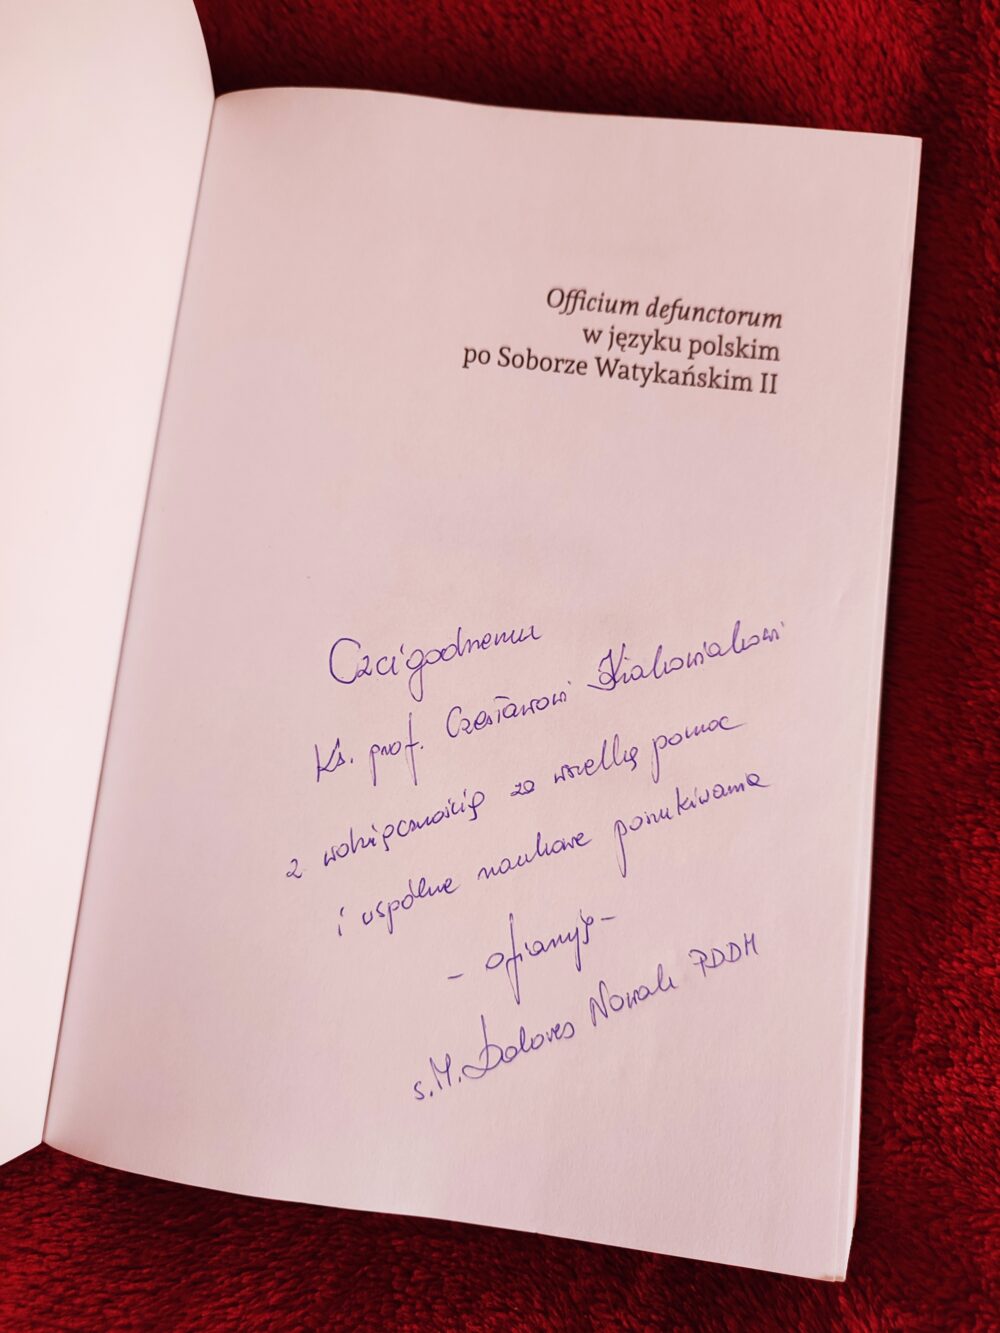 Officium defunctorum
w języku polskim
po Soborze Watykańskim II
Czcigodnemu
Ks. prof. Czesławowi Krakowiakowi
z wdzięcznością za wszelką pomoc
i wspólne naukowe poszukiwania
- ofiaruję -
s. M. Dolores Nowak PDDM